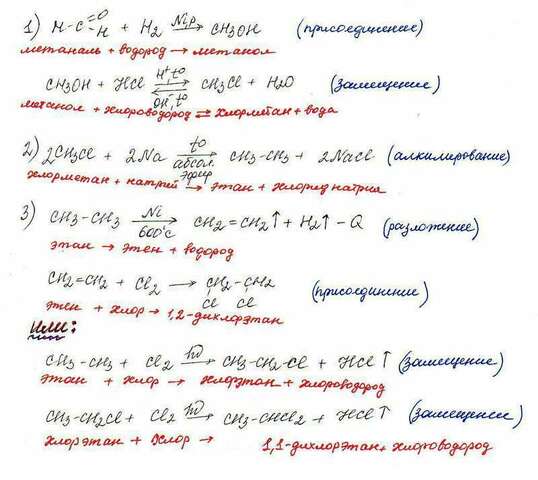 1) H-C=O H + H2 Ni,p → CH3OH (присоединение)
метаналь + водород → метанол
CH3OH + HCl H+,t0 ⇄ OH-,t0 CH3Cl + H2O (замещение)
метанол + хлороводород ⇄ хлорметан + вода
2) 2CH3Cl + 2Na t0 → абсол. эфир CH3-CH3 + 2NaCl (алкилирование)
хлорметан + натрий → этан + хлорид натрия
3) CH3-CH3 Ni → 600°C CH2=CH2↑ + H2↑ - Q (разложение)
этан → этен + водород
CH2=CH2 + Cl2 → CH2-CH2 (присоединение)
Cl Cl
этен + хлор → 1,2-дихлорэтан
Или:
CH3-CH3 + Cl2 hν → CH3-CH2-Cl + HCl↑ (замещение)
этан + хлор → хлорэтан + хлороводород
CH3-CH2Cl + Cl2 hν → CH3-CHCl2 + HCl↑ (замещение)
хлорэтан + хлор → 1,1-дихлорэтан + хлороводород